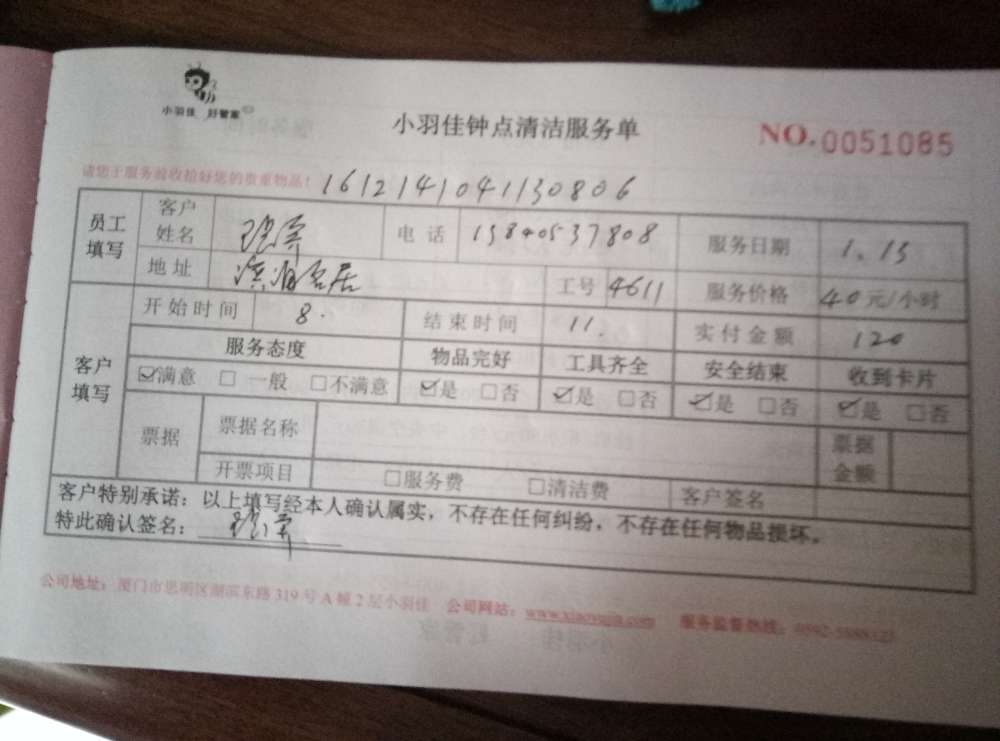 小羽佳 好管家
小羽佳钟点清洁服务单
NO.0051085
请您于服务前收拾好您的贵重物品!
1612141041130806
员工填写 客户姓名 电话 13840537808 服务日期 1.13
地址 工号 4611 服务价格 40元/小时
客户填写 开始时间 8. 结束时间 11. 实付金额 120
服务态度 物品完好 工具齐全 安全结束 收到卡片
☑满意 □一般 □不满意 ☑是 □否 ☑是 □否 ☑是 □否 ☑是 □否
票据 票据名称 票据金额
开票项目 □服务费 □清洁费 客户签名
客户特别承诺:以上填写经本人确认属实,不存在任何纠纷,不存在任何物品损坏。
特此确认签名:
公司地址:厦门市思明区湖滨东路319号A幢2层小羽佳 公司网站:www.xiaoyujia.com 服务监督热线: